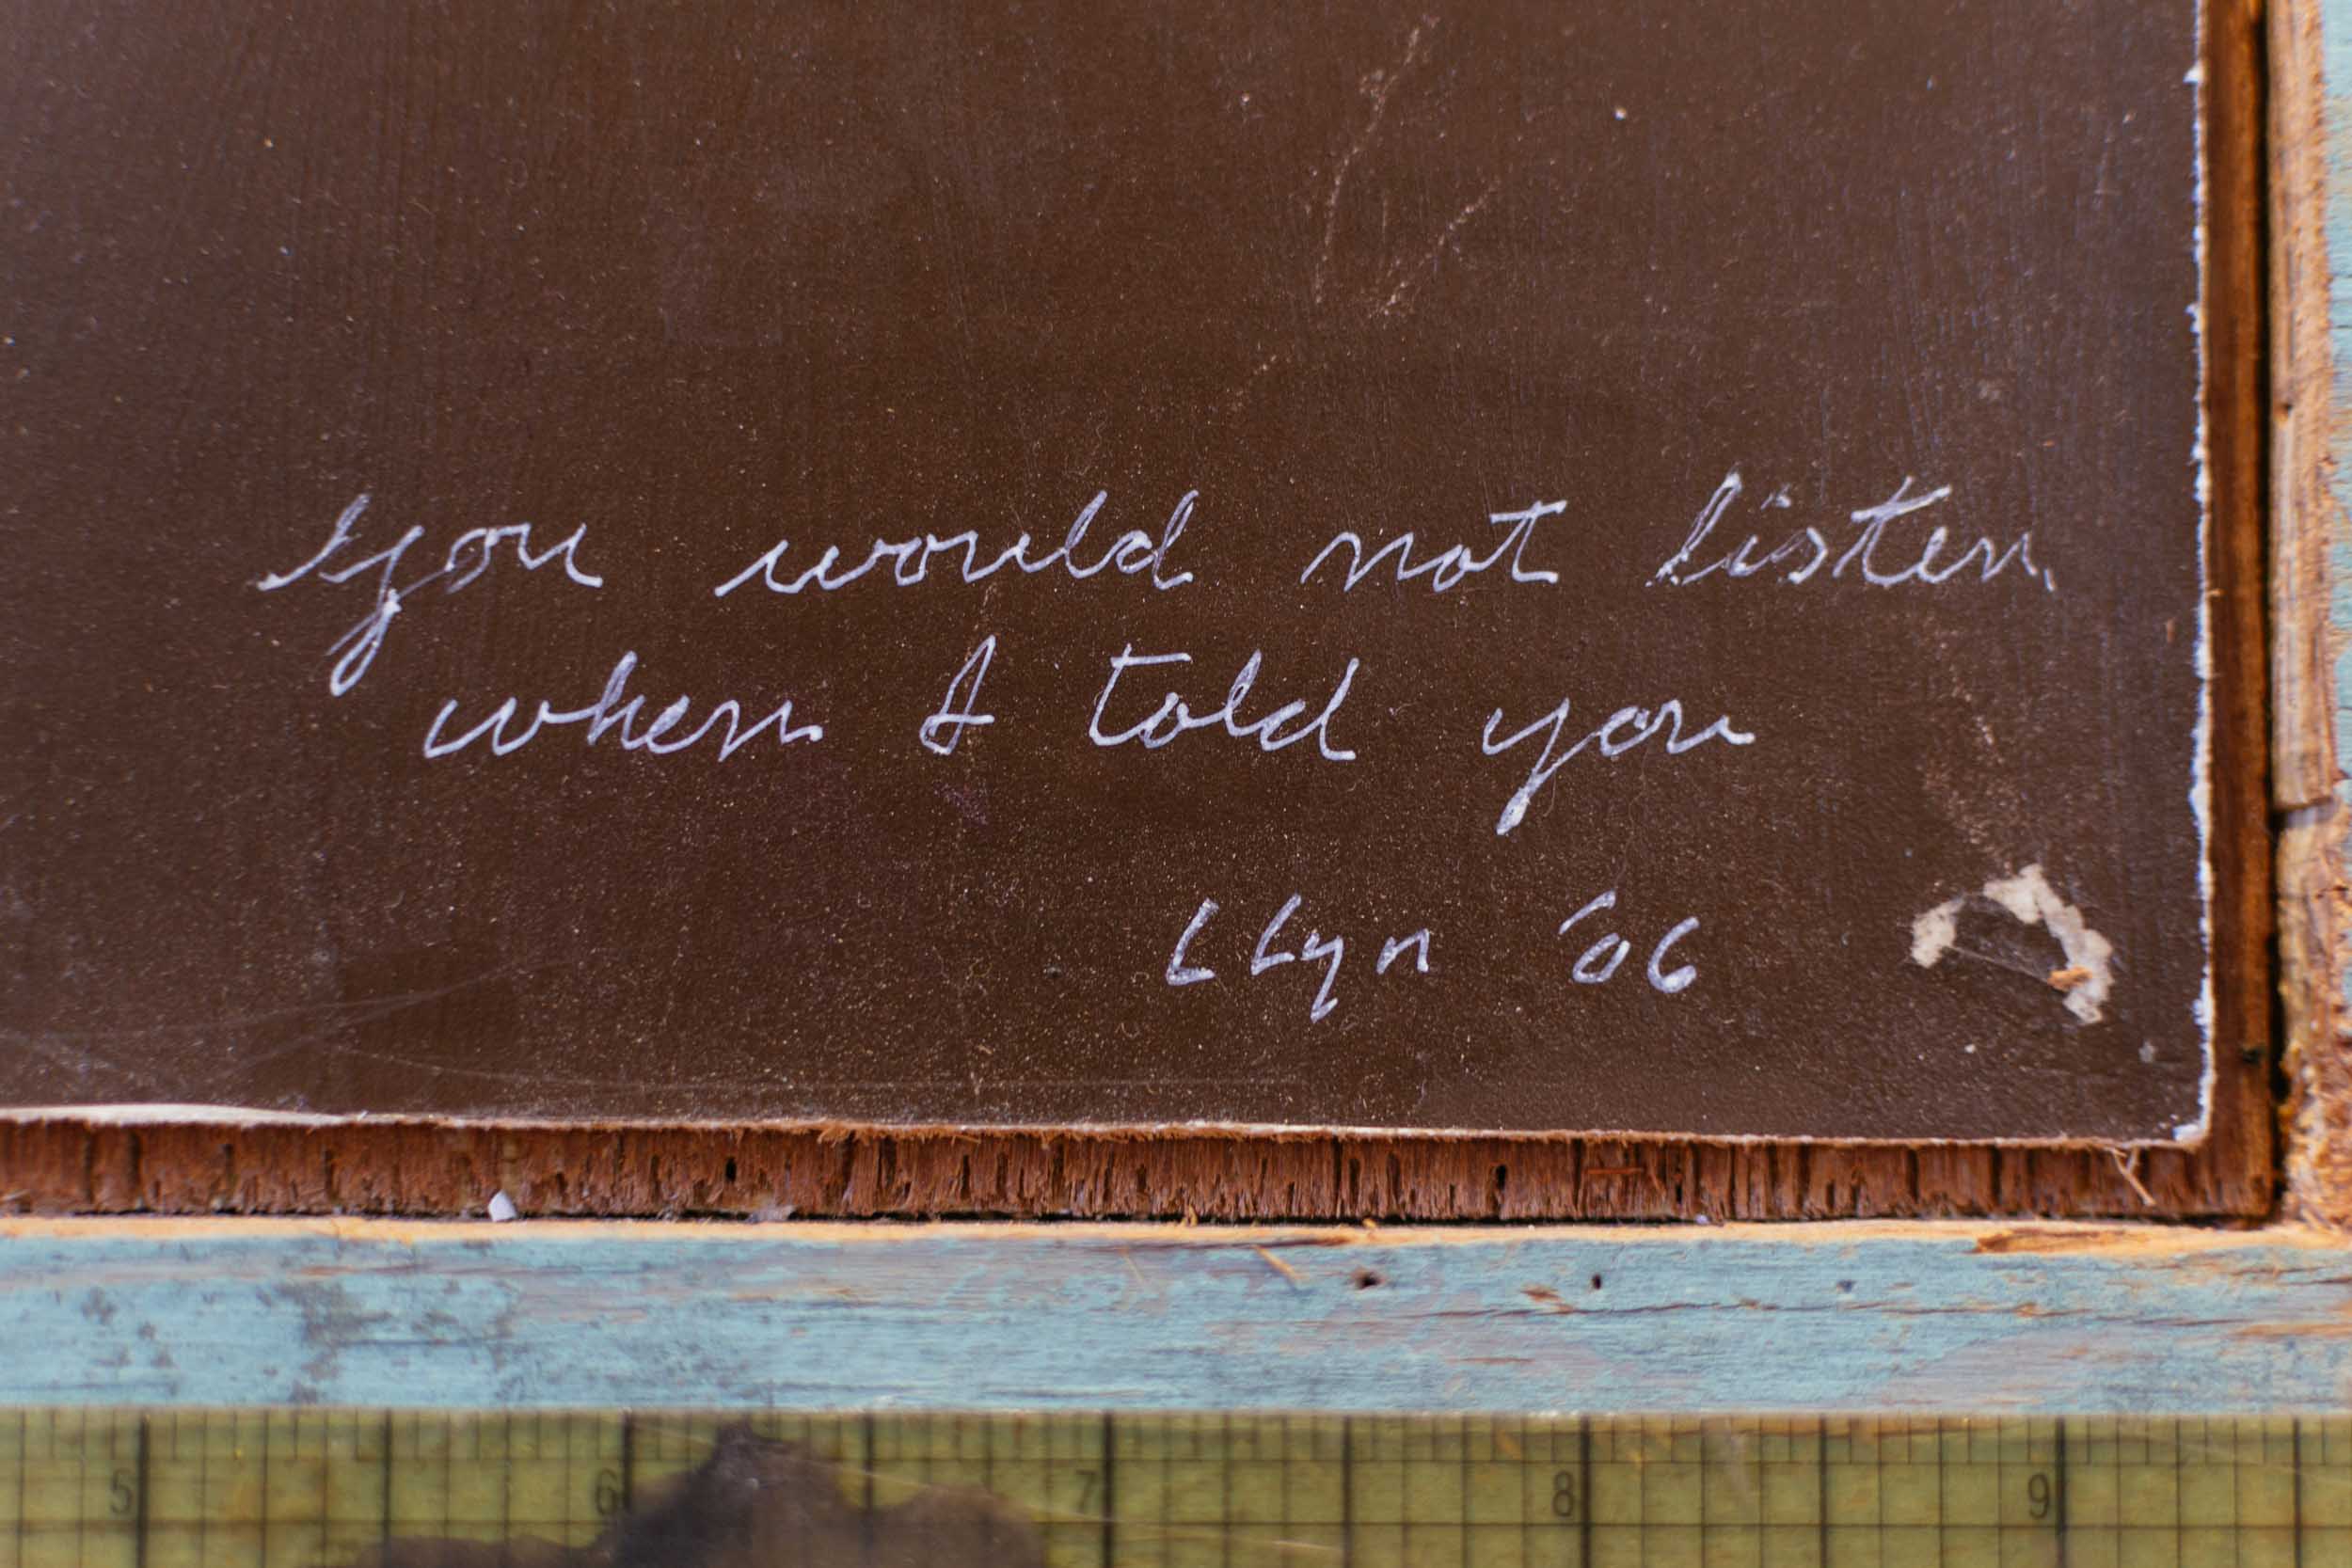 you would not listen,
when I told you
LLyn '06
5 6 7 8 9